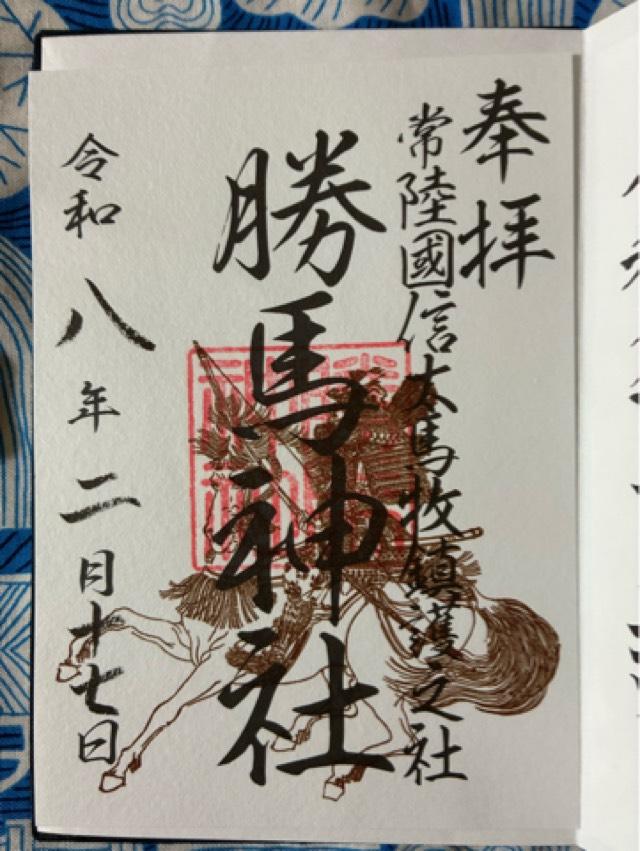 奉拝
常陸國信太馬牧鎮護之社
勝馬神社
令和八年二月十七日